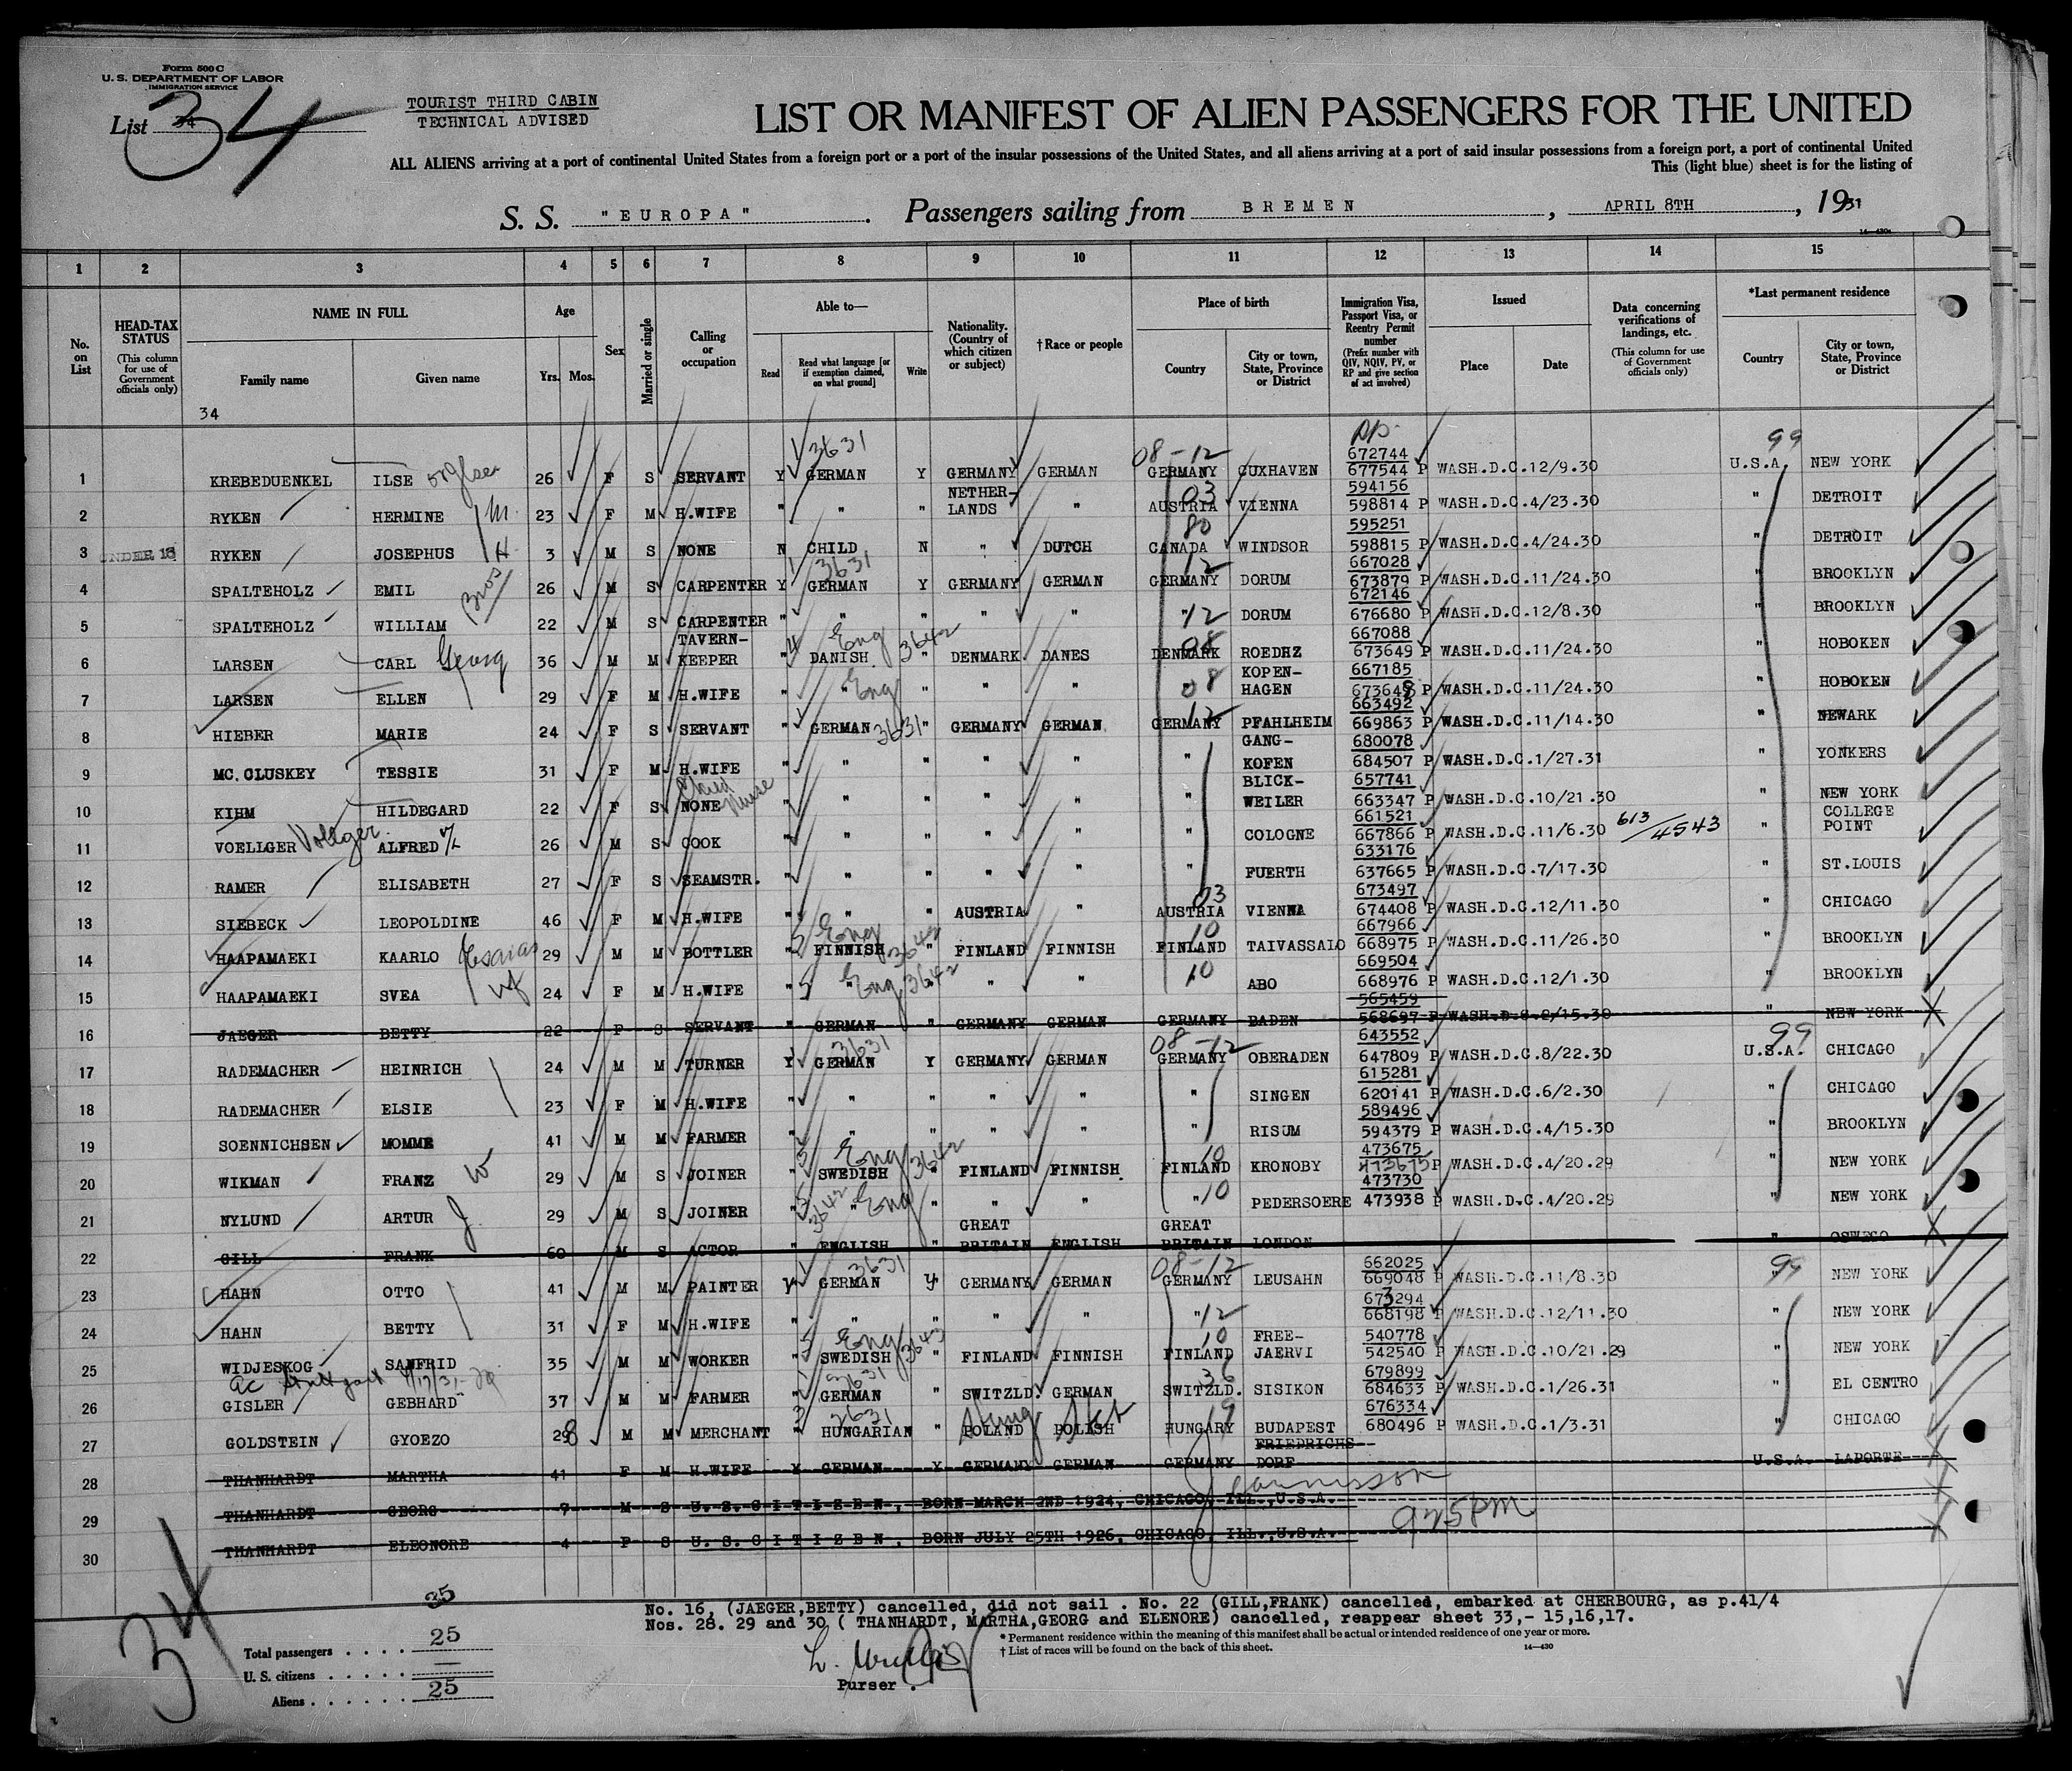 Form 500 C
U. S. DEPARTMENT OF LABOR
IMMIGRATION SERVICE
List 34
34
TOURIST THIRD CABIN
TECHNICAL ADVISED
LIST OR MANIFEST OF ALIEN PASSENGERS FOR THE UNITED
ALL ALIENS arriving at a port of continental United States from a foreign port or a port of the insular possessions of the United States, and all aliens arriving at a port of said insular possessions from a foreign port, a port of continental United
This (light blue) sheet is for the listing of
S. S. "EUROPA". Passengers sailing from BREMEN, APRIL 8TH, 1931
14—430a
1 2 3 4 5 6 7 8 9 10 11 12 13 14 15
No. on List
HEAD-TAX STATUS (This column for use of Government officials only)
NAME IN FULL Family name Given name
Age Yrs. Mos.
Sex
Married or single
Calling or occupation
Able to— Read Read what language [or if exemption claimed, on what ground] Write
Nationality. (Country of which citizen or subject)
†Race or people
Place of birth Country City or town, State, Province or District
Immigration Visa, Passport Visa, or Reentry Permit number (Prefix number with QIV, NQIV, PV, or RP and give section of act involved)
Issued Place Date
Data concerning verifications of landings, etc. (This column for use of Government officials only)
*Last permanent residence Country City or town, State, Province or District
34
1 KREBEDUENKEL ILSE 26 F S SERVANT Y GERMAN 3631 Y GERMANY GERMAN 08-12 GERMANY CUXHAVEN 672744 677544 P WASH.D.C. 12/9.30 99 U.S.A. NEW YORK
2 RYKEN HERMINE 23 F M H.WIFE " " " NETHER-LANDS " 03 AUSTRIA VIENNA 594156 598814 P WASH.D.C. 4/23.30 " DETROIT
3 UNDER 16 RYKEN JOSEPHUS 3 M S NONE N CHILD N " DUTCH 80 CANADA WINDSOR 595251 598815 P WASH.D.C. 4/24.30 " DETROIT
4 SPALTEHOLZ EMIL Bros 26 M S CARPENTER Y GERMAN 3631 Y GERMANY GERMAN 12 GERMANY DORUM 667028 673879 P WASH.D.C. 11/24.30 " BROOKLYN
5 SPALTEHOLZ WILLIAM 22 M S CARPENTER " " " " " " 12 DORUM 672146 676680 P WASH.D.C. 12/8.30 " BROOKLYN
6 LARSEN CARL Georg 36 M M TAVERN-KEEPER " DANISH Eng 3642 " DENMARK DANES 08 DENMARK ROEDHZ 667088 673649 P WASH.D.C. 11/24.30 " HOBOKEN
7 LARSEN ELLEN 29 F M H.WIFE " " Eng " " " " 08 KOPEN-HAGEN 667185 673648 P WASH.D.C. 11/24.30 " HOBOKEN
8 HIEBER MARIE 24 F S SERVANT " GERMAN 3631 " GERMANY GERMAN 12 GERMANY PFAHLHEIM 663492 669863 P WASH.D.C. 11/14.30 " NEWARK
9 MC.CLUSKEY TESSIE 31 F M H.WIFE " " " " " " GANG-KOFEN 680078 684507 P WASH.D.C. 1/27.31 " YONKERS
10 KIHM HILDEGARD 22 F S NONE Child Nurse " " " " " " BLICK-WEILER 657741 663347 P WASH.D.C. 10/21.30 " NEW YORK
11 VOELLGER ALFRED 26 M S COOK " " " " " " COLOGNE 661521 667866 P WASH.D.C. 11/6.30 613/4543 " COLLEGE POINT
12 RAMER ELISABETH 27 F S SEAMSTR. " " " " " " FUERTH 633176 637665 P WASH.D.C. 7/17.30 " ST.LOUIS
13 SIEBECK LEOPOLDINE 46 F M H.WIFE " " " AUSTRIA " 03 AUSTRIA VIENNA 673497 674408 P WASH.D.C. 12/11.30 " CHICAGO
14 HAAPAMAEKI KAARLO 29 M M BOTTLER " FINNISH Eng 3642 " FINLAND FINNISH 10 FINLAND TAIVASSALO 667966 668975 P WASH.D.C. 11/26.30 " BROOKLYN
15 HAAPAMAEKI SVEA wf 24 F M H.WIFE " " Eng 3642 " " " 10 ABO 669504 668976 P WASH.D.C. 12/1.30 " BROOKLYN
16 JAEGER BETTY 22 F S SERVANT " GERMAN " GERMANY GERMAN GERMANY BADEN 565459 568697 P WASH.D.C. 2/15.30 " NEW YORK
17 RADEMACHER HEINRICH 24 M M TURNER Y GERMAN 3631 Y GERMANY GERMAN 08-12 GERMANY OBERADEN 643552 647809 P WASH.D.C. 8/22.30 99 U.S.A. CHICAGO
18 RADEMACHER ELSIE 23 F M H.WIFE " " " " " " SINGEN 615281 620141 P WASH.D.C. 6/2.30 " CHICAGO
19 SOENNICHSEN MOMME 41 M M FARMER " " " " " " RISUM 589496 594379 P WASH.D.C. 4/15.30 " BROOKLYN
20 WIKMAN FRANZ W 29 M S JOINER " SWEDISH Eng 3642 " FINLAND FINNISH 10 FINLAND KRONOBY 473675 473675 P WASH.D.C. 4/20.29 " NEW YORK
21 NYLUND ARTUR J. 29 M S JOINER " " Eng 3642 " " " " 10 PEDERSOERE 473730 473938 P WASH.D.C. 4/20.29 " NEW YORK
22 GILL FRANK 60 M S ACTOR " ENGLISH " GREAT BRITAIN ENGLISH GREAT BRITAIN LONDON " OSWEGO
23 HAHN OTTO 41 M M PAINTER Y GERMAN 3631 Y GERMANY GERMAN 08-12 GERMANY LEUSAHN 662025 669048 P WASH.D.C. 11/8.30 99 " NEW YORK
24 HAHN BETTY 31 F M H.WIFE " " " " " " 12 673294 668198 P WASH.D.C. 12/11.30 " NEW YORK
25 WIDJESKOG SANFRID 35 M M WORKER " SWEDISH Eng 3642 " FINLAND FINNISH 10 FINLAND FREE-JAERVI 540778 542540 P WASH.D.C. 10/21.29 " NEW YORK
ac Stuttgart 4/17/31
26 GISLER GEBHARD 37 M M FARMER " GERMAN 3631 " SWITZLD. GERMAN 36 SWITZLD. SISIKON 679899 684633 P WASH.D.C. 1/26.31 " EL CENTRO
27 GOLDSTEIN GYOEZO 28 M M MERCHANT " HUNGARIAN 3631 " POLAND POLISH 19 HUNGARY BUDAPEST 676334 680496 P WASH.D.C. 1/3.31 " CHICAGO
28 THANHARDT MARTHA 41 F M H.WIFE Y GERMAN Y GERMANY GERMAN GERMANY FRIEDRICHS-DORF U.S.A. LAPORTE
29 THANHARDT GEORG 7 M S U.S.CITIZEN, BORN MARCH 2ND 1924, CHICAGO, ILL.,U.S.A.
30 THANHARDT ELEONORE 4 F S U.S.CITIZEN, BORN JULY 25TH 1926, CHICAGO, ILL.,U.S.A.
925PM
34
35
No. 16, (JAEGER,BETTY) cancelled, did not sail . No. 22 (GILL,FRANK) cancelled, embarked at CHERBOURG, as p.41/4
Nos. 28. 29 and 30 ( THANHARDT, MARTHA,GEORG and ELENORE) cancelled, reappear sheet 33,- 15,16,17.
* Permanent residence within the meaning of this manifest shall be actual or intended residence of one year or more.
† List of races will be found on the back of this sheet.
14—430
Total passengers . . . . 25
U. S. citizens . . . . . . —
Aliens . . . . . . 25
Purser .